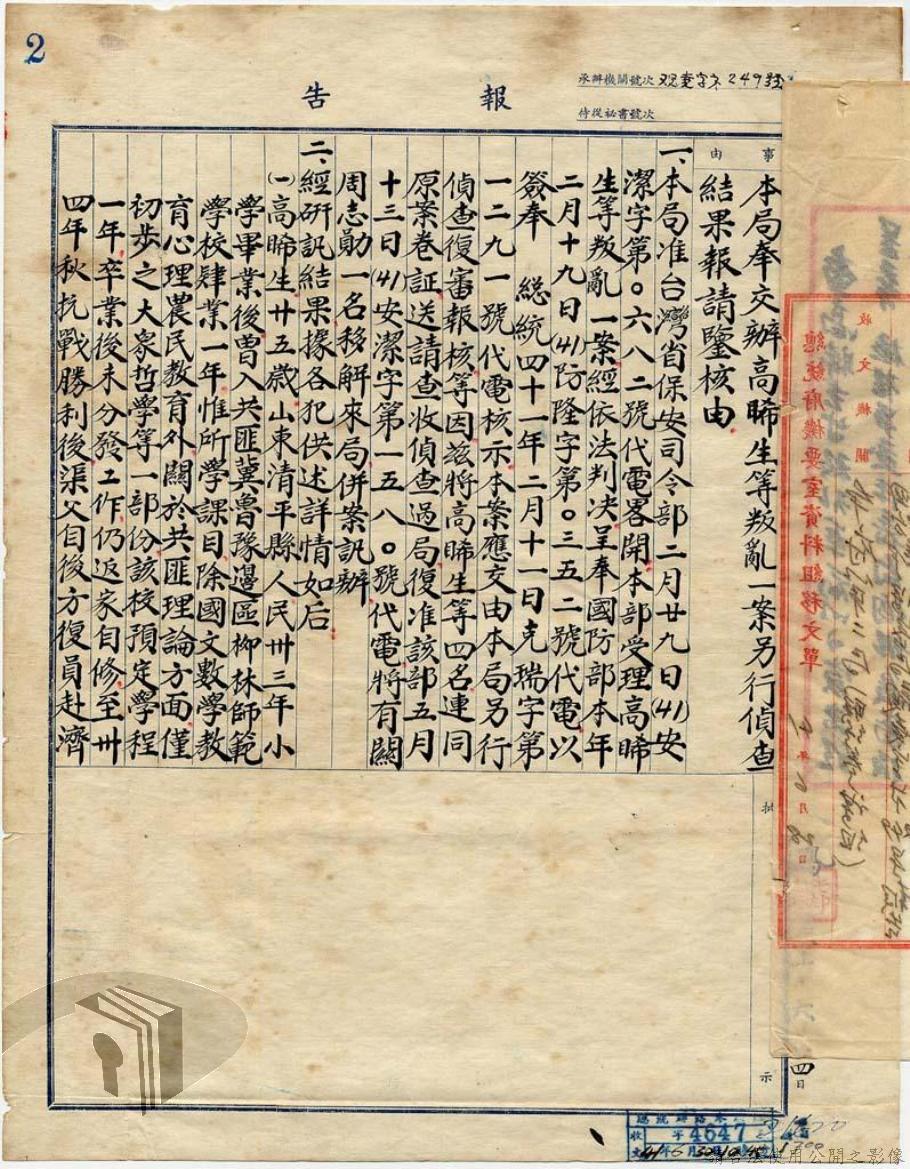 2
報告
承辦機關號次
2493號
侍從祕書號次
事由
本局奉交辦高晞生等叛亂一案另行偵查
結果報請鑒核由
一、本局准台灣省保安司令部二月廿九日(41)安
潔字第〇六八二號代電畧開本部受理高晞
生等叛亂一案經依法判决呈奉國防部本年
二月十九日(41)防隆字第〇三五二號代電以
簽奉 総統四十一年二月十一日克瑞字第
一二九一號代電核示本案應交由本局另行
偵查復審報核等因兹將高晞生等四名連同
原案卷証送請查收偵查過局復准該部五月
十三日(41)安潔字第一五八〇號代電將有關
周志勛一名移解來局併案訊辦
二、經研訊結果據各犯供述詳情如后
(一)高晞生廿五歲山東清平縣人民卅三年小
學畢業後曾入共匪冀魯豫邊區柳林師範
學校肄業一年惟所學課目除國文數學教
育心理農民教育外關於共匪理論方面僅
初步之大衆哲學等一部份該校預定學程
一年卒業後未分發工作仍返家自修至卅
四年秋抗戰勝利後渠父自後方復員赴濟
批示
總統府機要室資料組移文單
收文機關
年
月
日
四日
收
字
4647
請合法使用公開之影像